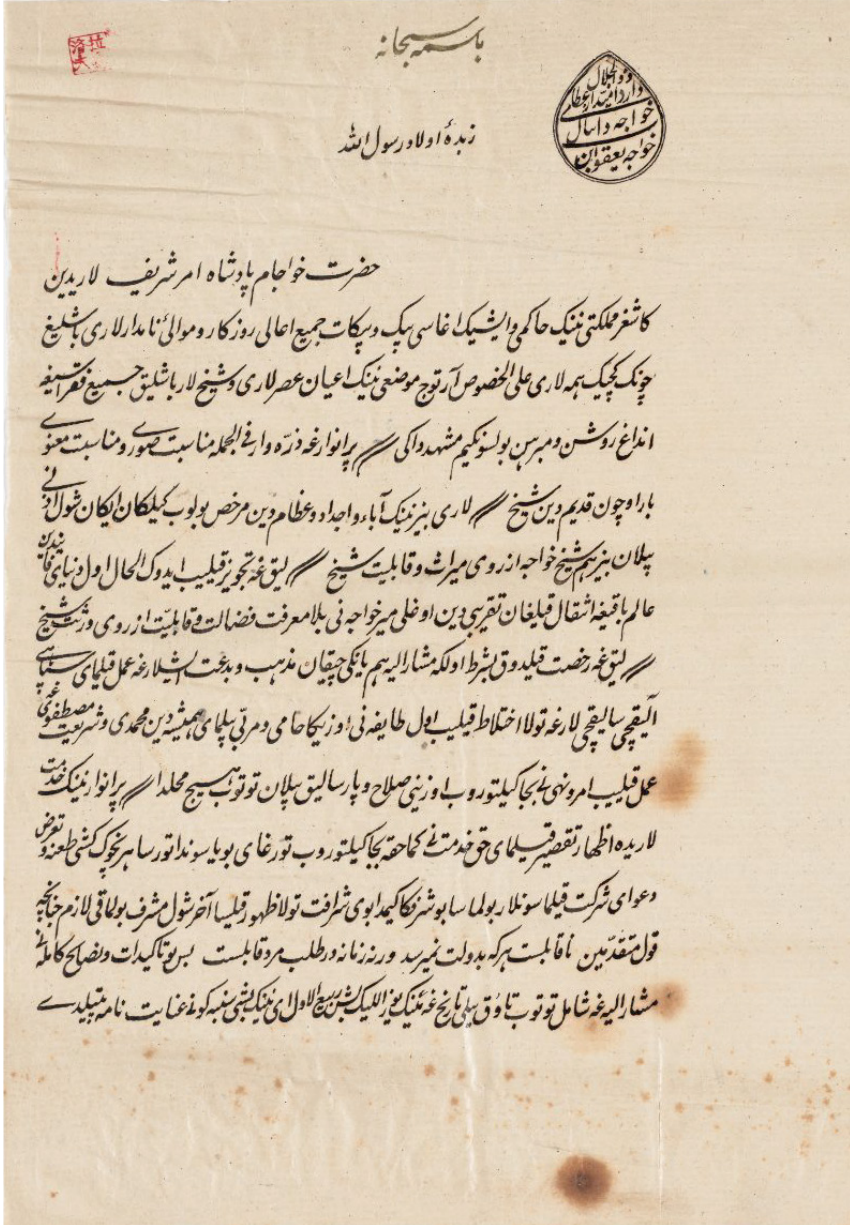 باسمه سبحانه
زبدهٔ اولاد رسول الله
خواجه دانیال
خواجه یعقوب
حضرت خواجام پادشاه امر شریف لاریدین
کاشغر مملکتی نینک حاکمی و ایشیک اغاسی بیک و بیکات جمیع اعالی روزکار و موالیٔ نامدار لاری باشلیغ
چونک کچیک همه لاری علی الخصوص آرتوج موضعی نینک اعیان عصر لاری و شیخ لار باشلیق جمیع فقراسیغه
انداغ روشن و مبرهن بولسونکیم مشهد داکی پر انوارغه ذرّه وار فی الجمله مناسبت صوری و مناسبت معنوی
بار اوچون قدیم دین شیخ لاری بیزنینک آباء و اجداد عظام دین مرخص بولوب کیلکان ایکان شول
بیلان بیز هم شیخ خواجه از روی میراث و قابلیت شیخ لیق غه تجویز قیلیب ایدوک الحال اول دنیای
عالم باقیغه انتقال قیلغان تقریبی دین اوغلی میر خواجه نی بلا معرفت فضالت و قابلیّت از روی شیخ
لیق غه رخصت قیلدوق بشرط اولکه مشار الیه هم یانکی چیقان مذهب و بدعت ایشلارغه عمل قیلمای
آلیقچی سالیقچی لارغه تولا اختلاط قیلیب اول طایفه نی اوزیکا حامی و مربّی بیلمای همیشه دین محمدی و شریعت مصطفوی غه
عمل قیلیب امر و نهی نی بجا کیلتوروب اوزینی صلاح و پارسالیق بیلان توتوب هیچ محلدا پر انوار نینک خدمت
لاریده اظهار تقصیر قیلمای حق خدمت نی کما حقه بجا کیلتوروب تورغای بو یاسوندا تورسا هر نچوک کشی طعنه و تعرض
و دعوای شرکت قیلماسونلار بولماسا بو شرفکا کیم دا بوی شرافت تولا ظهور قیلسا آخر شول مشرف بولماقی لازم چنانچه
قول متقدّمین ناقابلست هر که بدولت نمیرسد ورنه زمانه در طلب مرد قابلست بس بو تاکیدات و نصایح کامله نی
مشار الیه غه شامل توتوب تاوق ییلی تاریخ غه مینک یوز اللیک بش ربیع الاول ای نینک یشی شنبه کونی عنایت نامه بیتیلدی